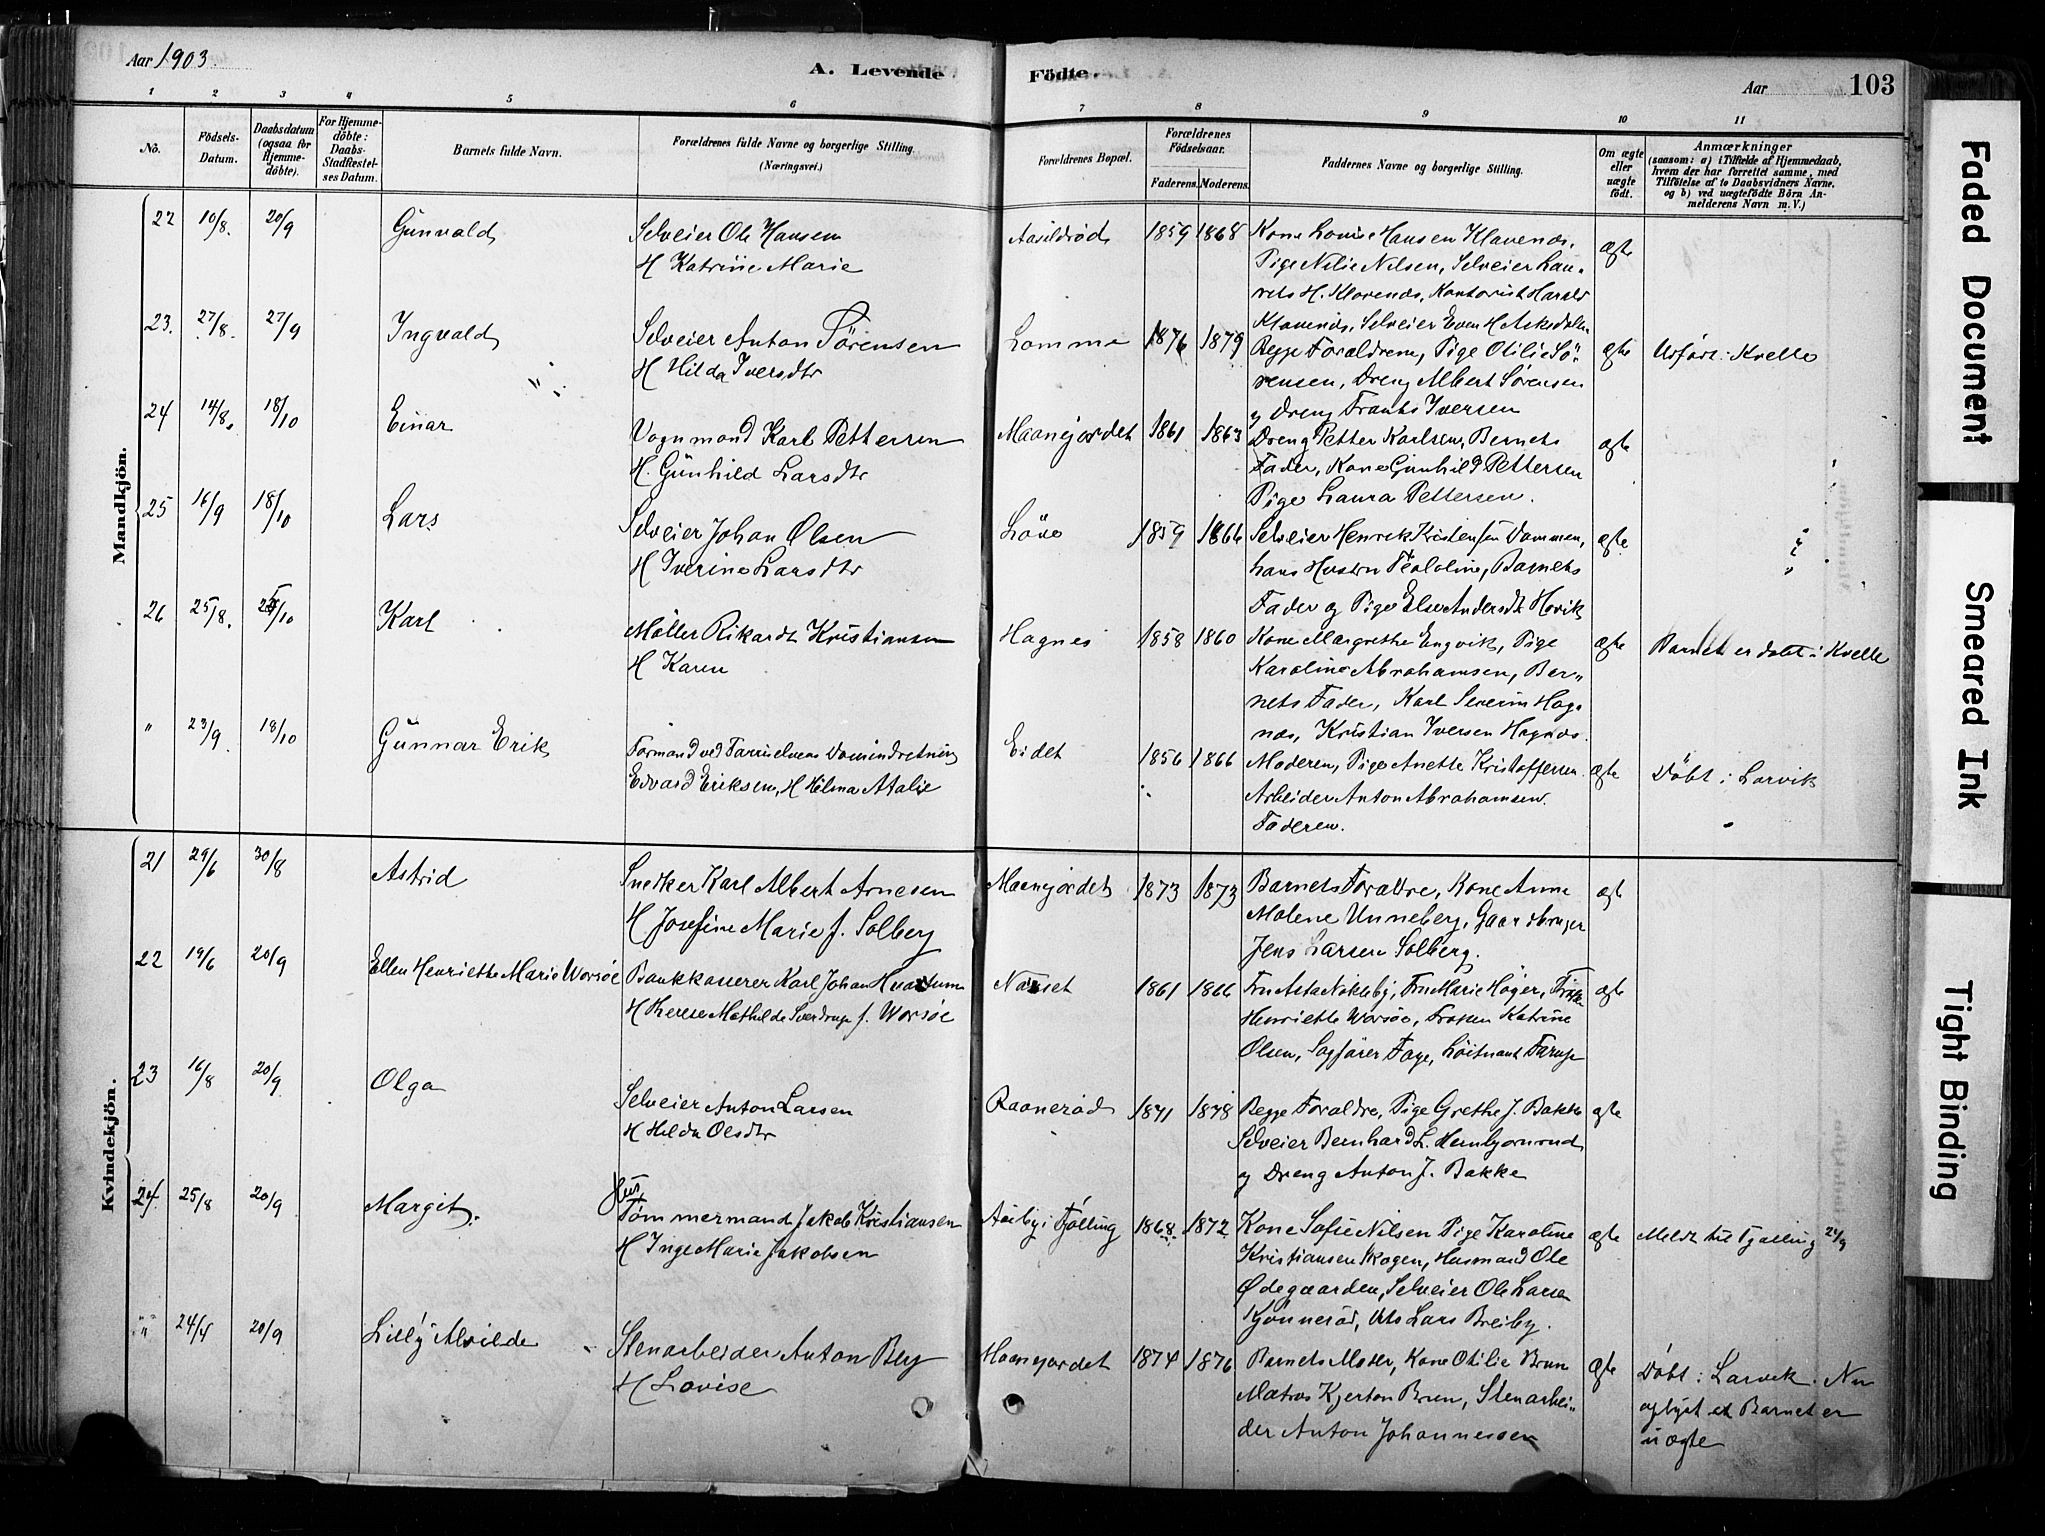 Aar 1903.
A. Levende
Födte.
Aar
103
1 2 3 4 5 6 7 8 9 10 11
No.
Födsels-
Datum.
Daabsdatum
(ogsaa for
Hjemme-
döbte).
For Hjemme-
döbte:
Daabs-
Stadfæstel-
ses Datum.
Barnets fulde Navn.
Forældrenes fulde Navne og borgerlige Stilling
(Næringsvei.)
Forældrenes Bopæl.
Forældrenes
Födselsaar.
Faderens. Moderens.
Faddernes Navne og borgerlige Stilling.
Om ægte
eller
uægte
födt.
Anmærkninger
(saasom: a) i Tilfælde af Hjemmedaab,
hvem der har forrettet samme, med
Tilföielse af to Daabsvidners Navne,
og b) ved uægtefödte Börn An-
melderens Navn m. V.)
Mandkjön.
22 10/8. 20/9 Gunvald
Selveier Ole Hansen
H Katrine Marie
Aasildröd 1859 1868
Kone Lovise Hansen Klavenæs,
Pige Nilie Nilsen, Selveier Lau-
rits H. Klavenæs, Kontorist Harald
Klavenæs, Selveier Even H.
ægte
23. 27/8. 27/9 Ingvald
Selveier Anton Sörensen
H Hilda Iversdtr
Lomme 1876 1879
Begge Forældrene, Pige Otilie Sö-
rensen, Dreng Albert Sörensen
og Dreng Frants Iversen
ægte
Udført i Kvelle
24 14/8. 18/10 Einar
Vognmand Karl Pettersen
H. Gunhild Larsdtr
Maanejordet 1861 1863
Dreng Petter Karlsen, Barnets
Fader, Kone Gunhild Pettersen
Pige Laura Pettersen.
ægte
25 16/9 18/10 Lars
Selveier Johan Olsen
H Iverine Larsdtr
Löve 1859 1866
Selveier Henrik Kristensen Dammen,
hans Hustru Teoline, Barnets
Fader og Pige Else Andersdt. Hovik
ægte
26 25/8. Karl
Möller Rikardt Kristiansen
H Karen
Hagnes 1858 1860
Kone Margrethe Engvik, Pige
Karoline Abrahamsen, Bar-
nets Fader, Karl Severin Hag-
næs, Kristian Iversen Hagnæs.
ægte
Barnet er döbt i Kvelle
" 23/9 18/10 Gunnar Erik
Formand ved Farriselvens Damindretning
Edvard Eriksen, H Hilma Atalie
Eidet 1856 1866
Moderen, Pige Anette Kristoffersen
Arbeider Anton Abrahamsen.
Faderen.
ægte
Döbt i Larvik
Kvindekjön.
21 29/6 30/8 Astrid
Snedker Karl Albert Arnesen
H Josefine Marie f. Solberg
Maanejordet 1873 1873
Barnets Forældre, Kone Anne
Malene Unneberg, Gaardbruger
Jens Larsen Solberg.
ægte
22 19/6 20/9 Ellen Henriethe Marie Worsöe
Bankkasserer Karl Johan Hvastum
H Therese Mathilde Sverdrup f. Worsöe
Nanset 1861 1866
Fru Asta Nökleby, Fru Marie Höyer, Fröken
Henriette Worsöe, Fröken Katrine
Olsen, Sagförer Faye, Löitnant Farup
ægte
23 16/8 20/9 Olga
Selveier Anton Larsen
H Hilda Olsdtr
Raaneröd 1871 1878
Begge Forældre, Pige Grethe J. Bakke
Selveier Bernhard L. Hembgonrud
og Dreng Anton J. Bakke
ægte
24. 25/8 20/9 Margit.
Hus
Tömmermand Jakob Kristiansen
H Inge Marie Jakobsen
Aarby i Tjölling 1868. 1872
Kone Sofie Nilsen Pige Karoline
Kristiansen Skogen, Husmand Ole
Ødegaarden, Selveier Ole Larsen
Gjönneröd, Uts Lars Breiby.
ægte
Meldt til Tjölling 21/9
" 24/4 20/9 Lilly Alvilde
Stenarbeider Anton Berg
H Lovise
Maanejordet 1874 1876
Barnets Moder, Kone Otilie Brun
Matros Kjerton Brun, Stenarbei-
der Anton Johannessen
ægte
Döbt i Larvik. Nu
oplyst at Barnet er
uægte
Faded Document
Smeared Ink
Tight Binding